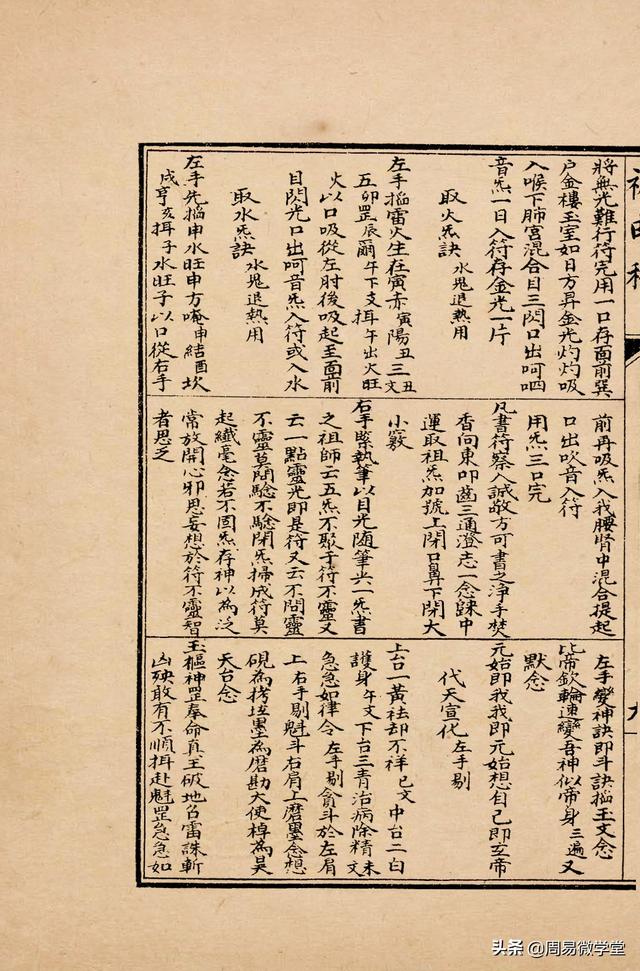 將無光難行符完用一口存面前巽
户金樓玉室如日方昇金光灼灼吸
入喉下肺宫混合目三閃口出呵呬
音炁一日入符存金光一片
取火炁訣 水鬼退熱用
左手掐雷火生在寅赤寅陽丑三丑文
五卯罡辰爾午下支揖午出火旺
火以口吸從左肘後吸起至面前
目閃光口出呵音炁入符或入水
取水炁訣 水鬼退熱用
左手先掐申水旺申方唵申結酉坎
戌亨亥揖子水旺子以口從右手
前再吸炁入我腰腎中混合提起
口出吹音入符
用炁三口完
凡書符察人誠敬方可書之淨手焚
香向東叩齒三通澄志一念歸中
運取祖炁加號上閉口鼻下閉大
小竅
右手緊執筆以目光随筆共一炁書
之祖師云五炁不聚于符不靈又
云一點靈光即是符又云不問靈
不靈莫問驗不驗閉炁掃成符莫
起纖毫念若不固炁存神以為泛
常放開心邪思妄想於符不靈智
者思之
左手變神訣即斗訣掐玉文念
比帝欽輪速變吾神似帝身 三遍又
默念
元始即我我即元始想自己即玄帝
代天宣化 左手剔
上台一黃祛却不祥 巳文 中台二白
護身 午文 下台三青治病除精 未文
急急如律令 左手剔貪斗於左肩
上右手剔魁斗右肩上磨墨念想
硯為拷廷墨為磨勘大使棹為昊
天台念
玉樞神罡奉命真王破地召雷誅斬
凶殃敢有不順揖赴魁罡急急如
九
头条 @周易微学堂